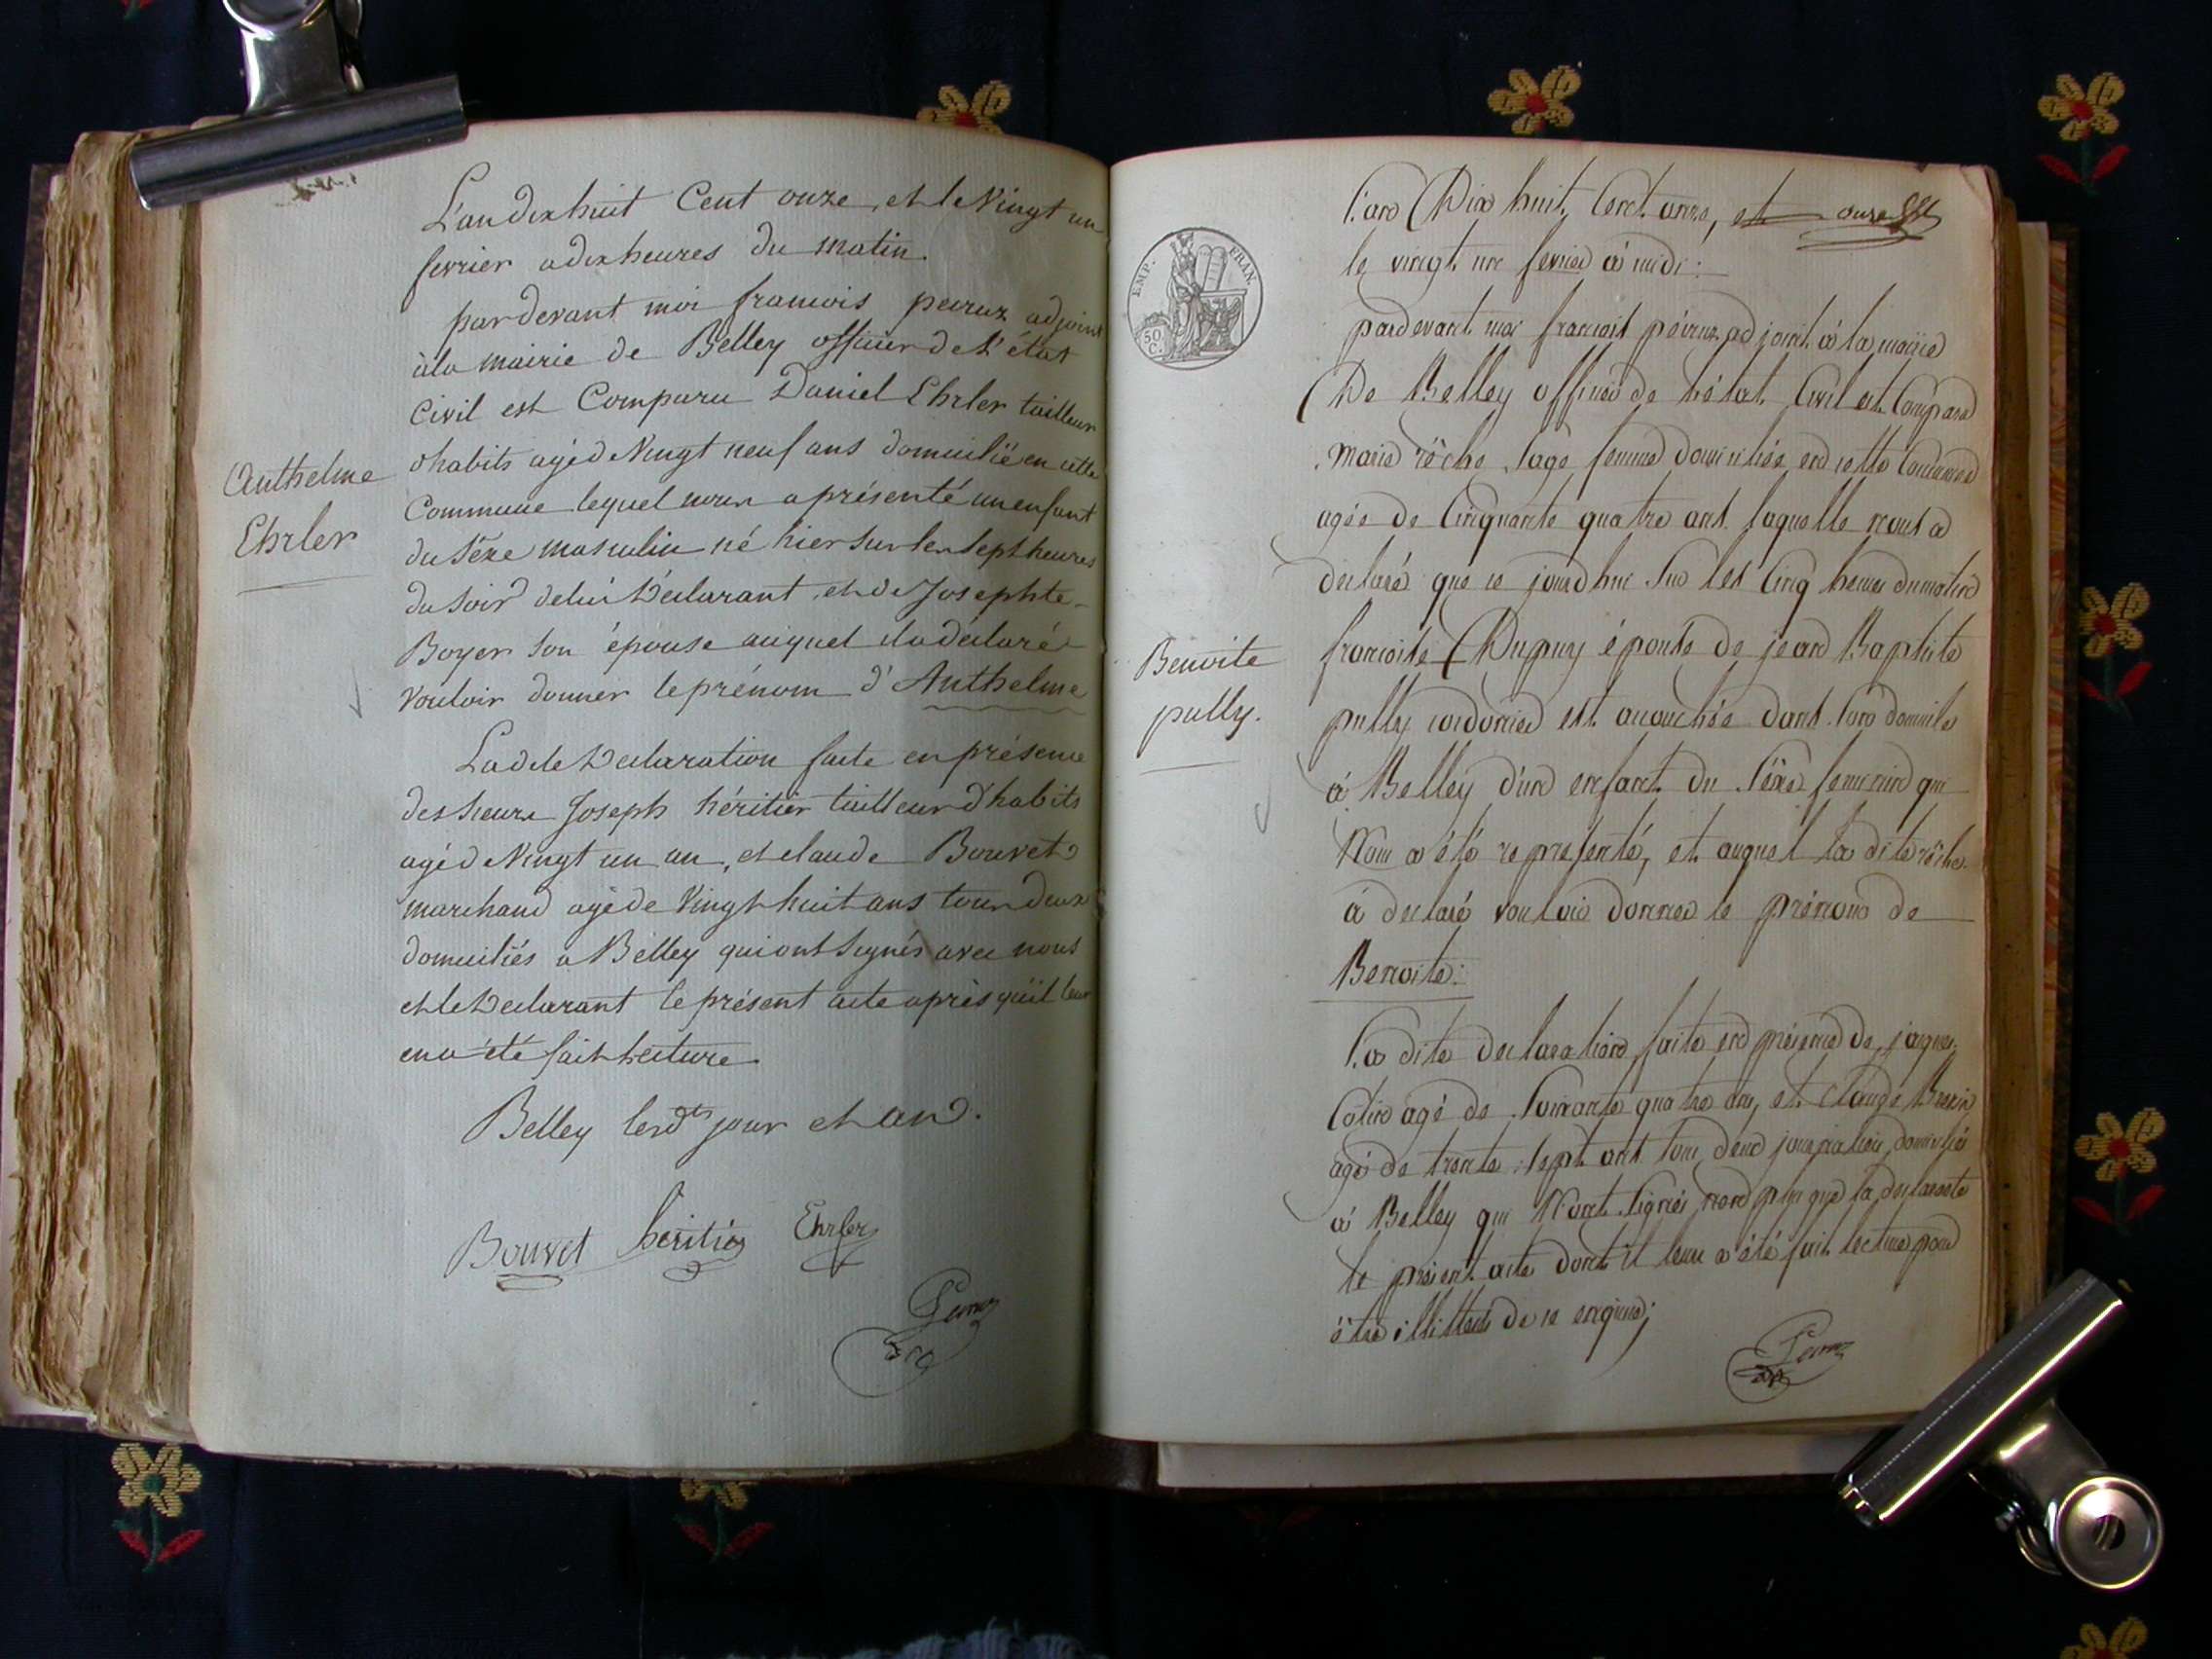 L'an dix huit Cent onze, et le Vingt un
fevrier a dix heures du matin.
pardevant moi francois peiruz adjoint
à la mairie de Belley officier de l'état
Civil est Comparu Daniel Ehrler tailleur
d'habits agé de Vingt neuf ans domicilié en cette
Commune lequel nous a présenté un enfant
du Séxe masculin né hier sur les Sept heures
du Soir de lui Déclarant, et de Josephte
Boyer son épouse auquel il a déclaré
vouloir donner le prénom d'Anthelme
La dite Declaration faite en présence
des sieurs Joseph héritier tailleur d'habits
agé de Vingt un an, et claude Bouvet
marchand agé de Vingt huit ans tous deux
domiciliés a Belley qui ont Signés avec nous
et le Declarant le présent acte après qu'il leur
en a été fait Lecture
Belley les dts jour et an.
Bouvet héritier Ehrler
Peiruz
Anthelme
Ehrler
EMP. FRAN.
50 C.
L'an Dix huit Cent onze, et onze
le vingt un fevrier à midi:
pardevant moi francois péiruz adjoint à la mairie
De Belley officier de l'état Civil est Comparu
marie rêche sage femme domiciliée en cette Commune
agée de Cinquante quatre ans laquelle nous a
declaré que ce jourd'hui Sur les Cinq heures du matin
francoise Dupuy épouse de jean Baptiste
pully cordonnier est accouchée dans son domicile
à Belley d'un enfant du Séxe feminin qui
Nous a été représenté, et auquel la dite rêche
à declaré vouloir donner le prénom de
Benoite:
La dite declaration faite en présence de jacques
Cotin agé de Soixante quatre ans, et Claude
agé de trente Sept ans tous deux journaliers domiciliés
à Belley qui N'ont Signés non plus que la declarante
le présent acte dont il leur a été fait lecture pour
être illitterés de ce enquis;
Peiruz
Benoite
pully.